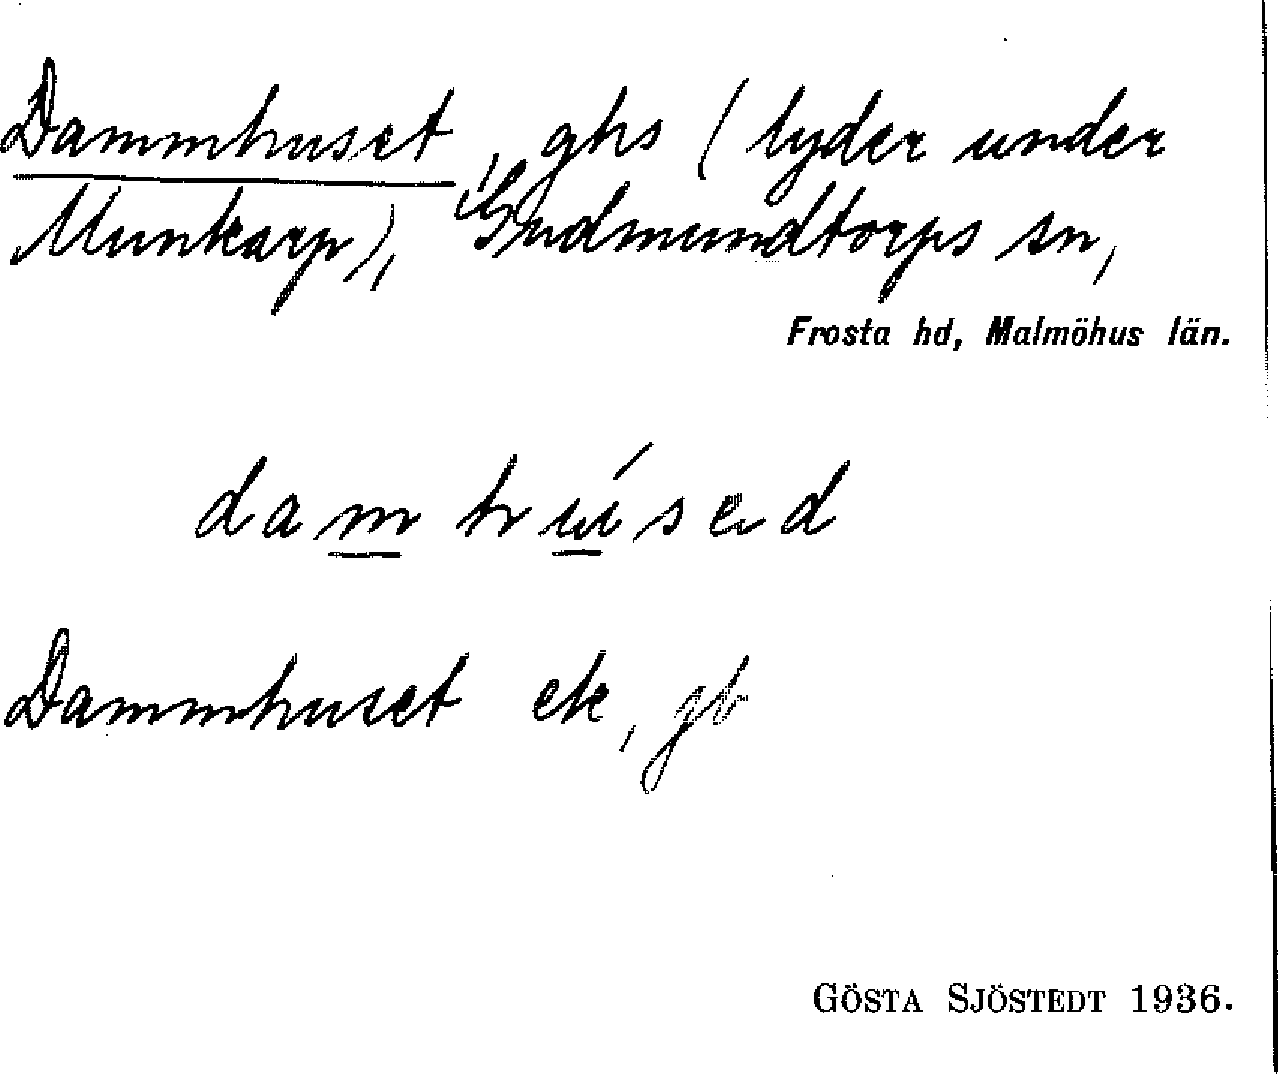 Dammhuset, ghs (lyder under
Munkarp), Gudmundtorps sn,
Frosta hd, Malmöhus län.
damhúsed
Dammhuset ek, gb
GÖSTA SJÖSTEDT 1936.